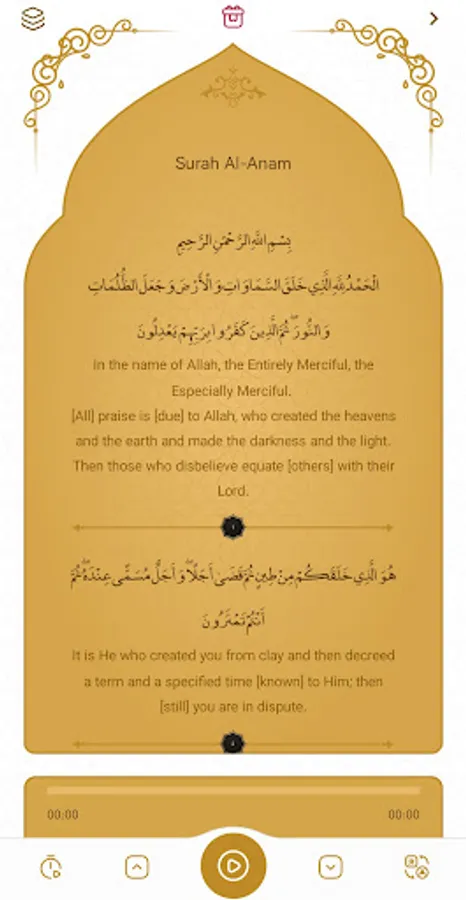 Surah Al-Anam
بِسْمِ اللَّهِ الرَّحْمَٰنِ الرَّحِيمِ
الْحَمْدُ لِلَّهِ الَّذِي خَلَقَ السَّمَاوَاتِ وَالْأَرْضَ وَجَعَلَ الظُّلُمَاتِ
وَالنُّورَ ۖ ثُمَّ الَّذِينَ كَفَرُوا بِرَبِّهِمْ يَعْدِلُونَ
In the name of Allah, the Entirely Merciful, the
Especially Merciful.
[All] praise is [due] to Allah, who created the heavens
and the earth and made the darkness and the light.
Then those who disbelieve equate [others] with their
Lord.
هُوَ الَّذِي خَلَقَكُمْ مِنْ طِينٍ ثُمَّ قَضَىٰ أَجَلًا ۖ وَأَجَلٌ مُسَمًّى عِنْدَهُ ۖ ثُمَّ
أَنْتُمْ تَمْتَرُونَ
It is He who created you from clay and then decreed
a term and a specified time [known] to Him; then
[still] you are in dispute.
00:00 00:00